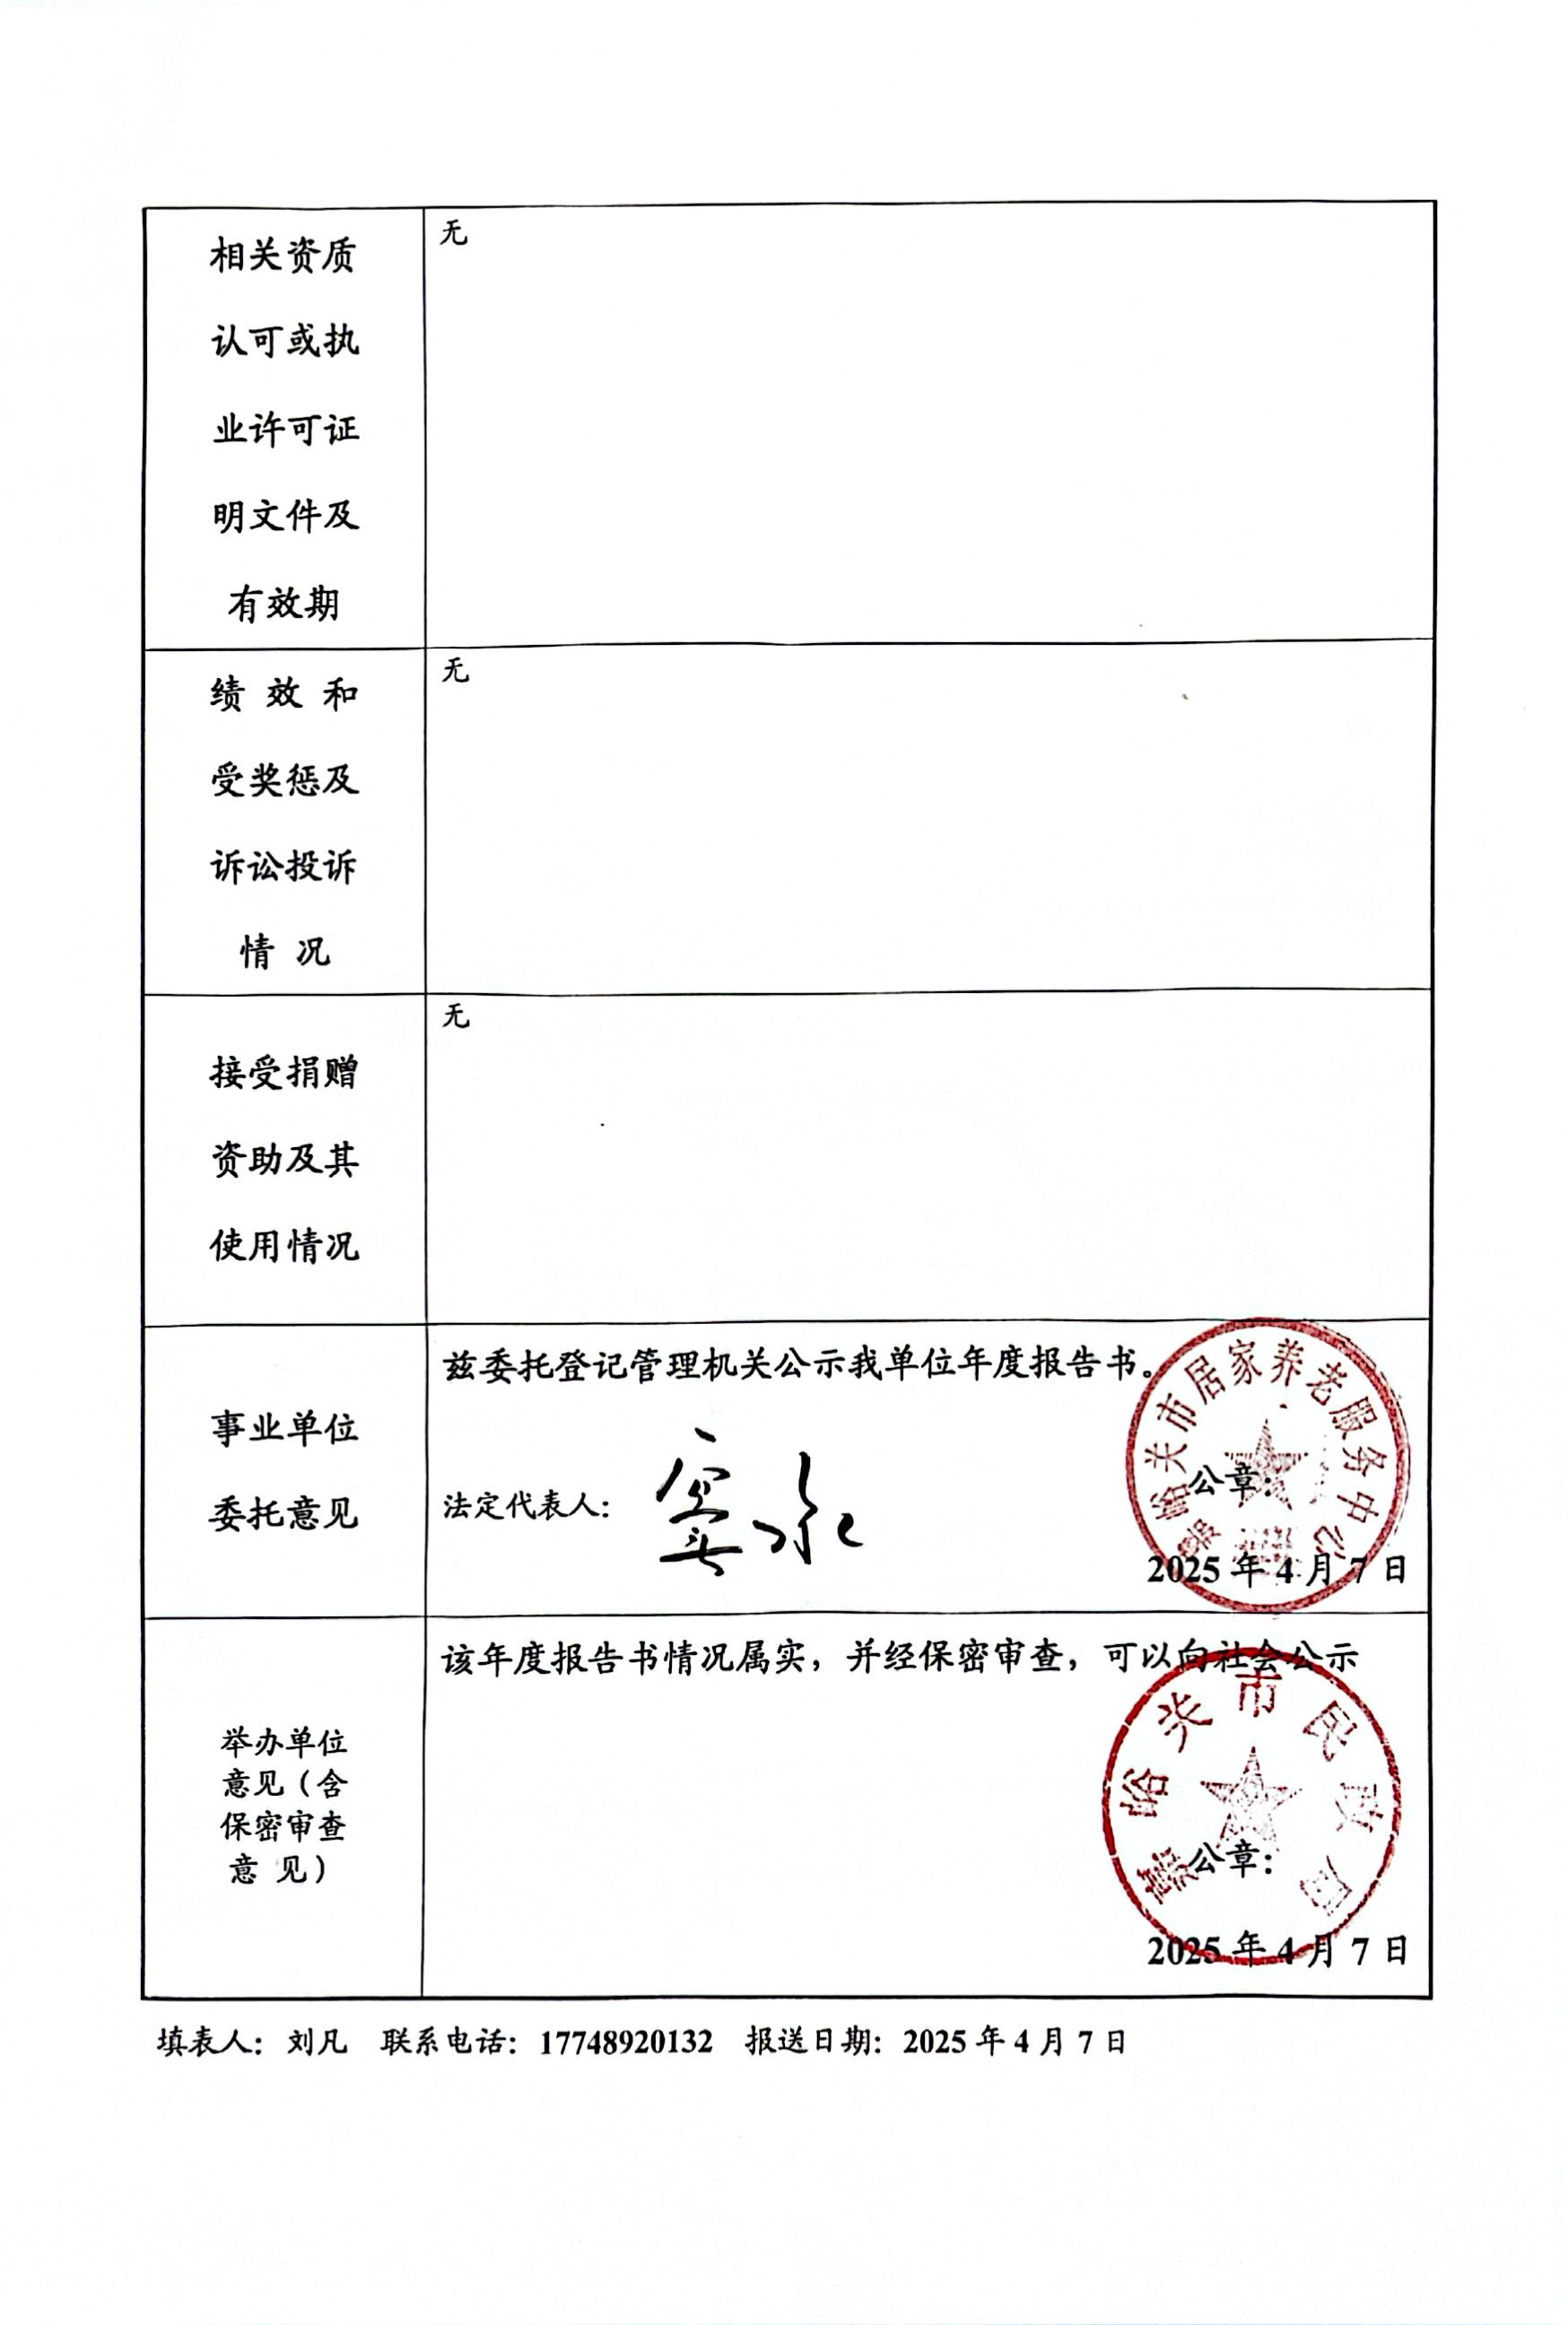 相关资质
认可或执
业许可证
明文件及
有效期
无
绩 效 和
受奖惩及
诉讼投诉
情 况
无
接受捐赠
资助及其
使用情况
无
事业单位
委托意见
兹委托登记管理机关公示我单位年度报告书。
法定代表人：
公章：
嘉峪关市居家养老服务中心
2025 年 4 月 7 日
举办单位
意见（含
保密审查
意 见）
该年度报告书情况属实，并经保密审查，可以向社会公示
嘉峪关市民政局
公章：
2025 年 4 月 7 日
填表人：刘凡 联系电话：17748920132 报送日期：2025 年 4 月 7 日